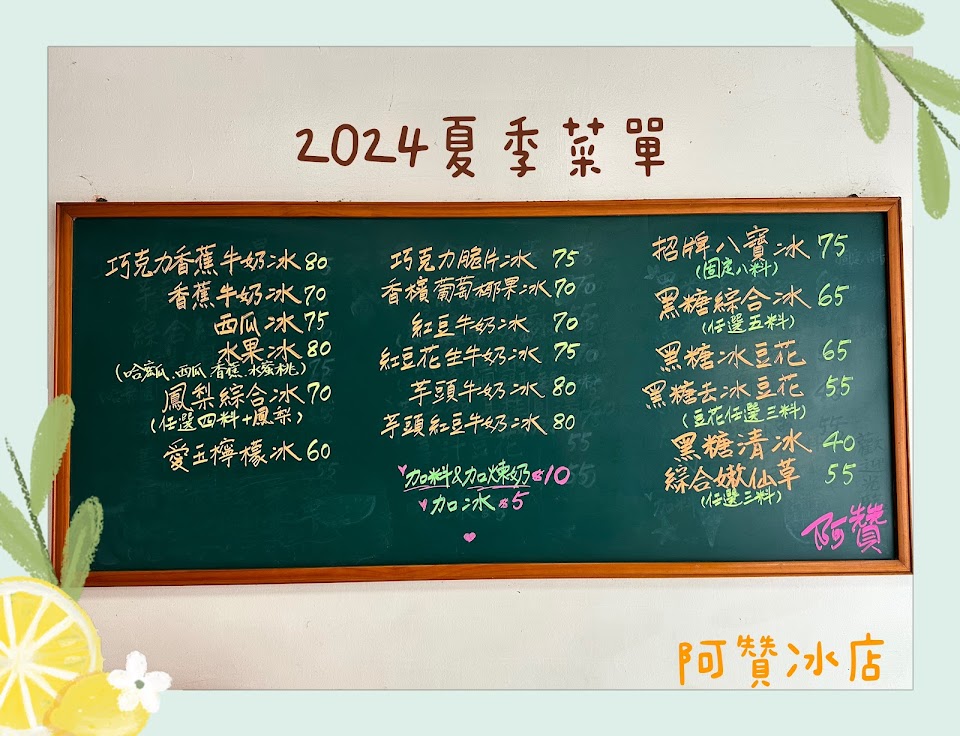 2024夏季菜單
巧克力香蕉牛奶冰 80
香蕉牛奶冰 70
西瓜冰 75
水果冰 80
(哈密瓜、西瓜、香蕉、水蜜桃)
鳳梨綜合冰 70
(任選四料+鳳梨)
愛玉檸檬冰 60
巧克力脆片冰 75
香檳葡萄椰果冰 70
紅豆牛奶冰 70
紅豆花生牛奶冰 75
芋頭牛奶冰 80
芋頭紅豆牛奶冰 80
加料&加煉奶各10
加冰各5
招牌八寶冰 75
(固定八料)
黑糖綜合冰 65
(任選五料)
黑糖冰豆花 65
黑糖去冰豆花 55
(豆花任選三料)
黑糖清冰 40
綜合嫩仙草 55
(任選三料)
阿贊
阿贊冰店